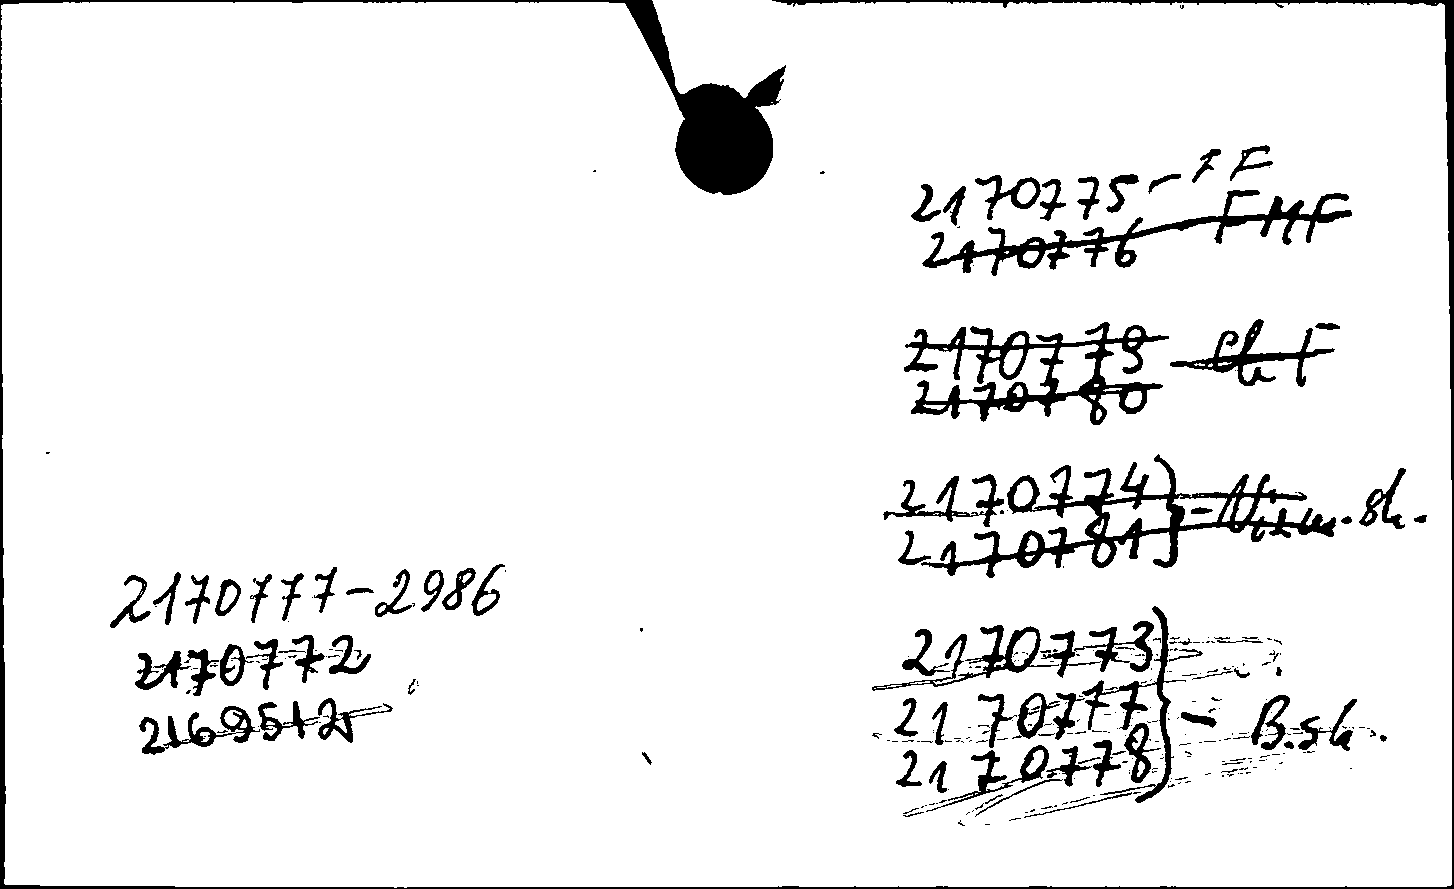 2170775 - FF
2170776 - FMF
2170779 - Ch F
2170780
2170774
2170781 } - sk.
2170773
2170777 } - B.sk.
2170778
2170777-2986
2170772
2169512